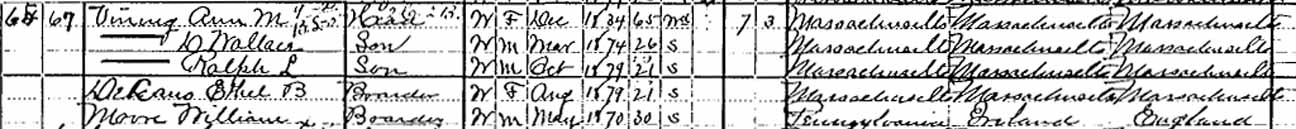 65 67 Vining Ann M Head W F Dec 1834 65 Wd 7 3 Massachusetts Massachusetts Massachusetts
— D Wallace Son W M Mar 1874 26 S Massachusetts Massachusetts Massachusetts
— Ralph L Son W M Oct 1879 21 S Massachusetts Massachusetts Massachusetts
Ethel B Boarder W F Aug 1879 21 S Massachusetts Massachusetts Massachusetts
Moore William Boarder W M May 1870 30 S Pennsylvania Ireland England